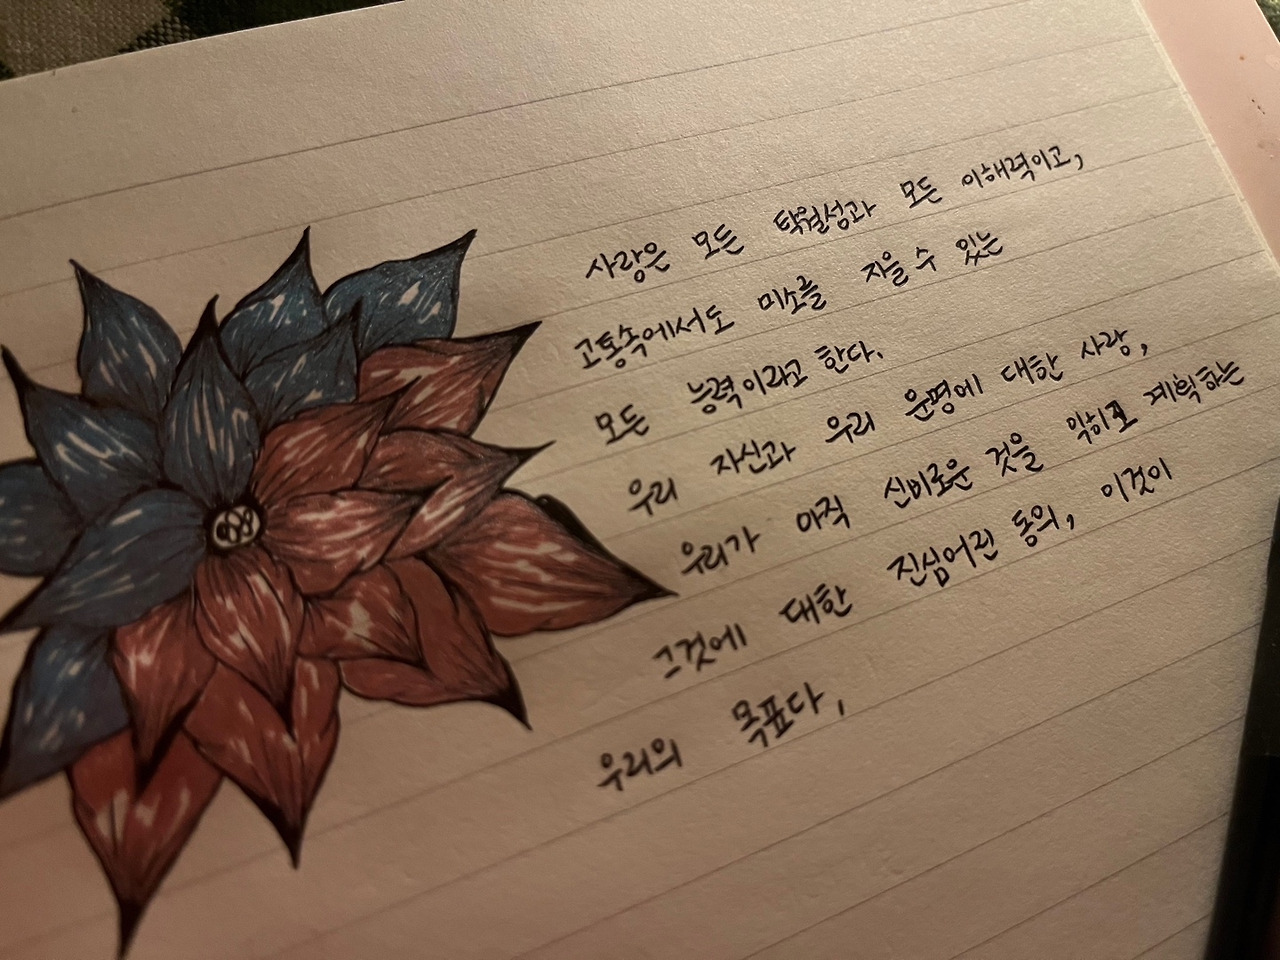 사랑은 모든 탁월성과 모든 이해력이고,
고통속에서도 미소를 지을 수 있는
모든 능력이라고 한다.
우리 자신과 우리 운명에 대한 사랑,
우리가 아직 신비로운 것을 익히고 계획하는
그것에 대한 진심어린 동의, 이것이
우리의 목표다,